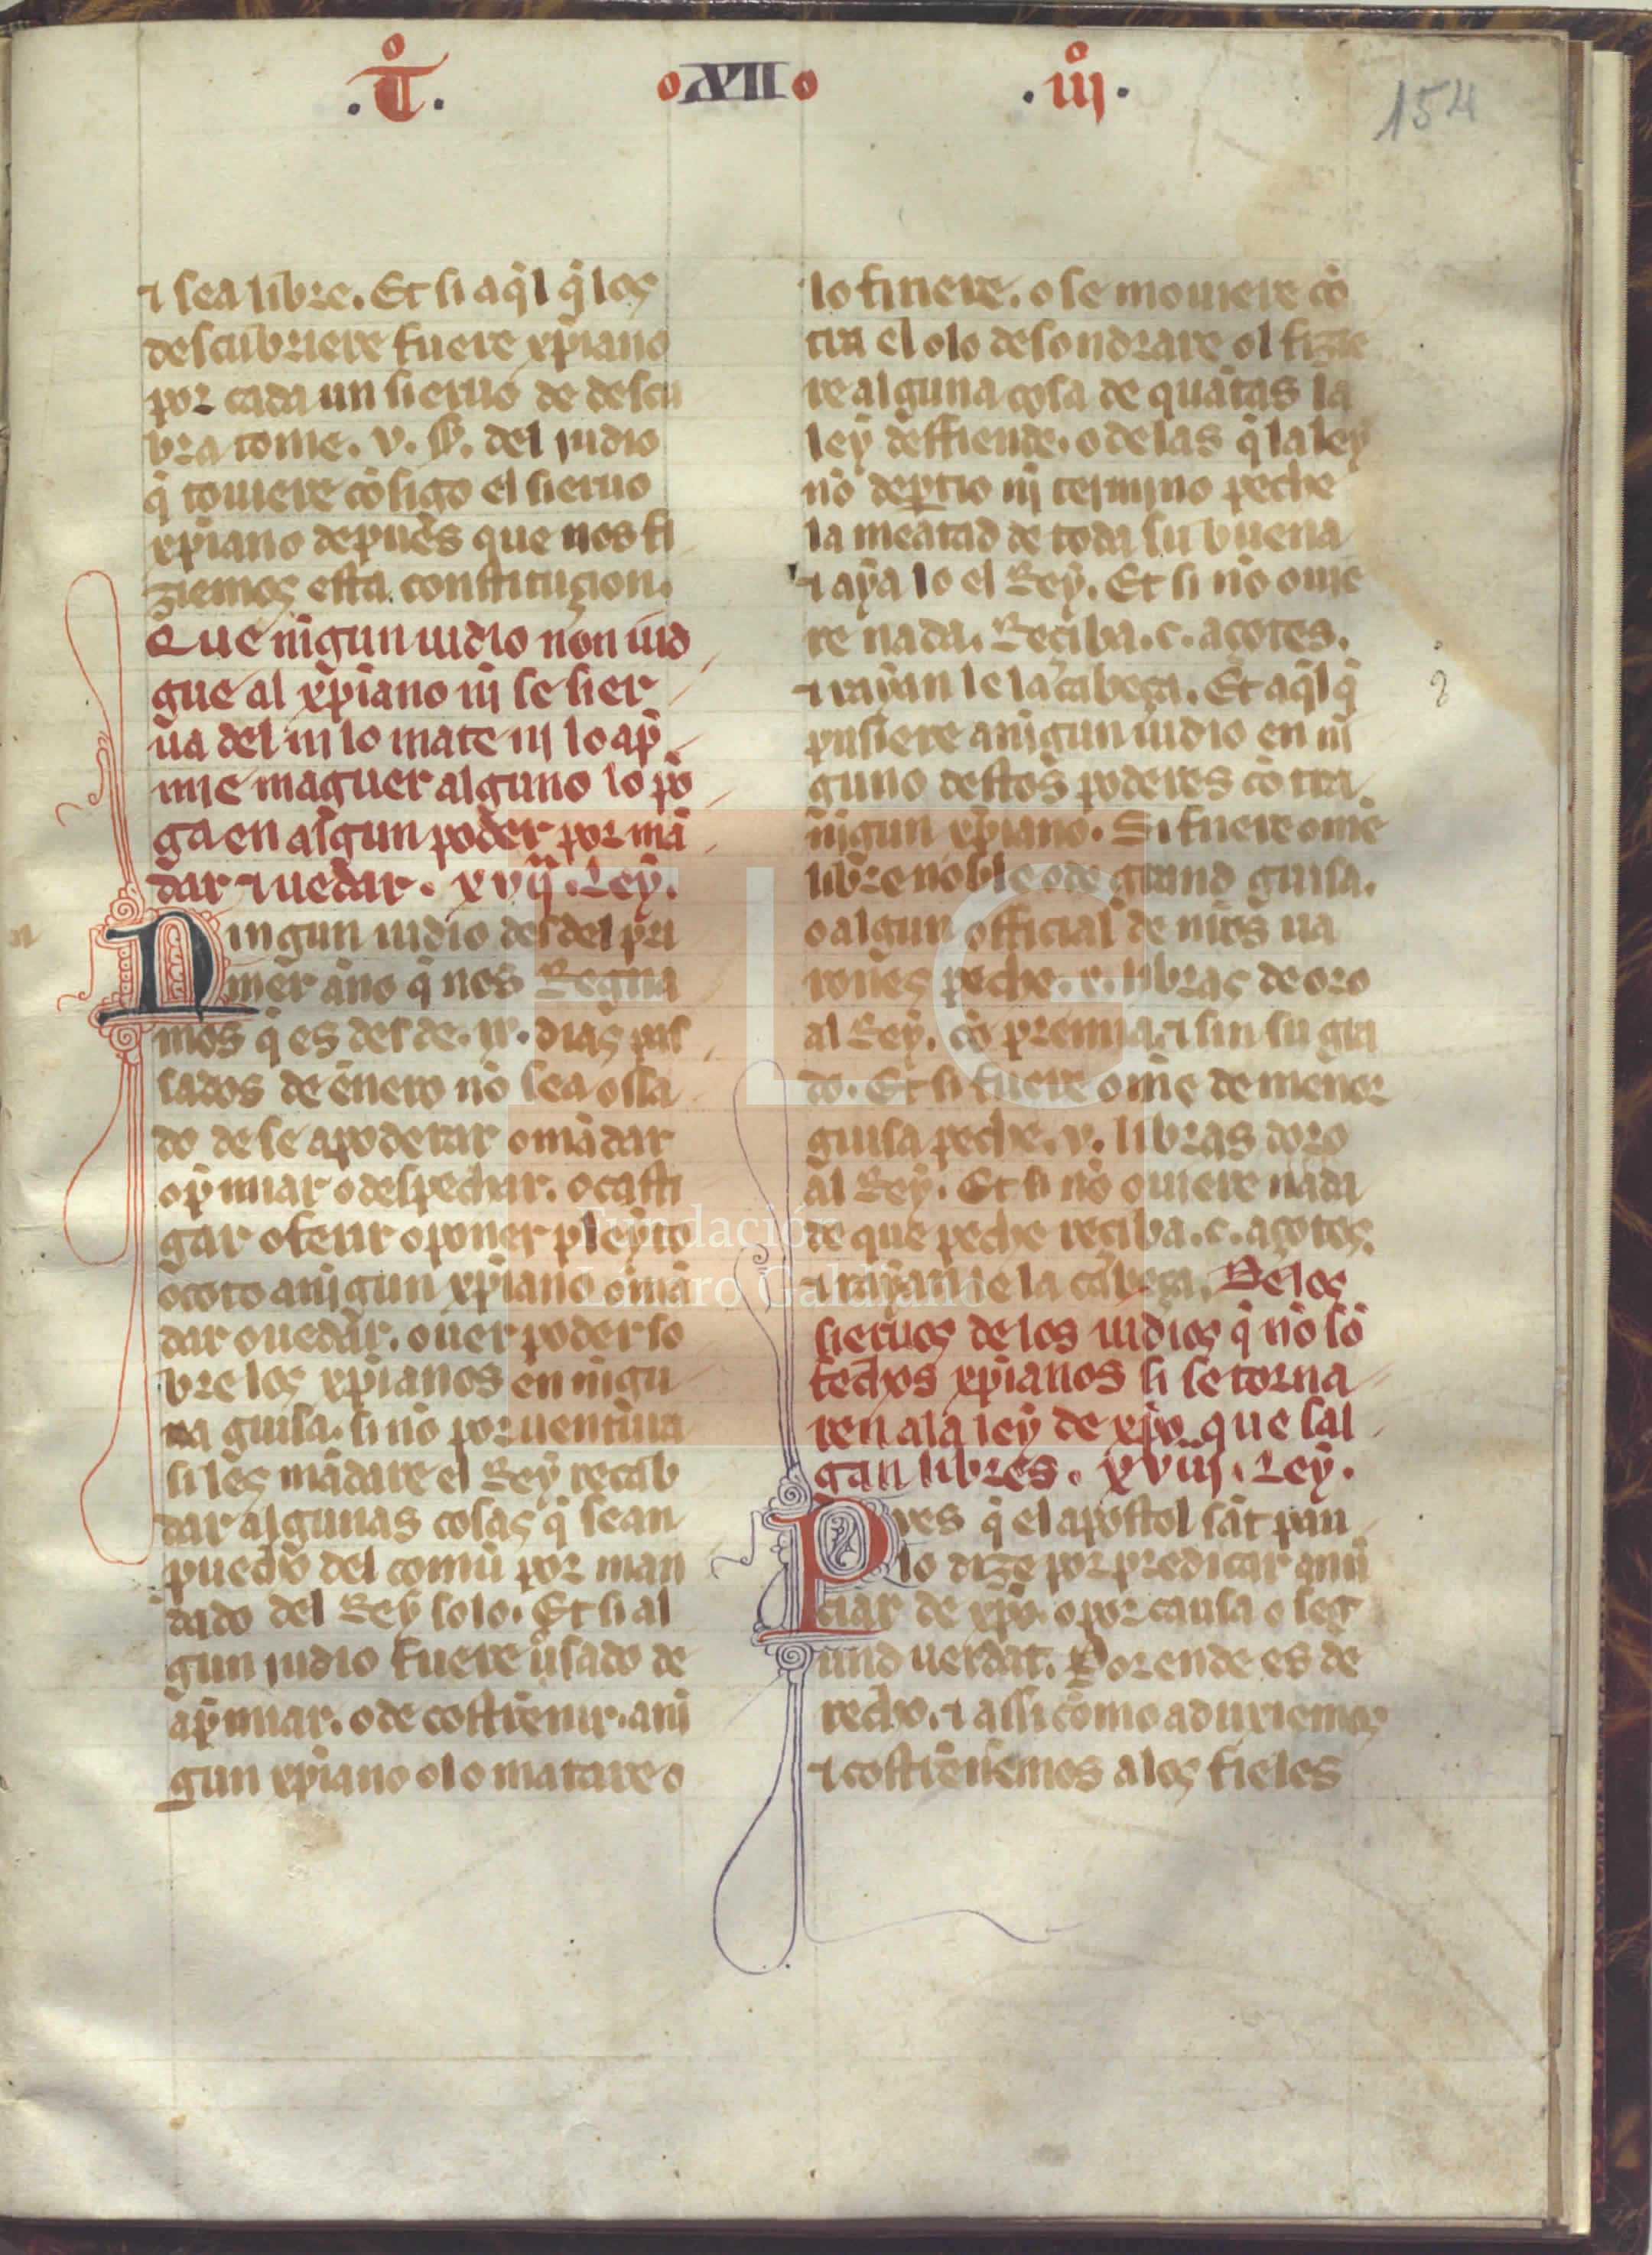 .T̊. oXIIo .iij̊.
154
⁊ sea libre. Et si aq̃l q̃ los
descubriere fuere xp̃iano
por cada un sieruo de descu
bra tome. v. ss. del judio
q̃ touiere cõsigo el sieruo
xp̃iano depues que nos fi
ziemos esta constituçion.
Que nigun iudio non iud
gue al xp̃iano nj se sier
ua del nj lo mate nj lo ap̃
mie maguer alguno lo põ
ga en algun poder por mã
dar ⁊ uedar. xvij. Ley.
Ningun iudio desdel pri
mer año q̃ nos Regna
mos q̃ es desde. ix. dias pas
sados de enero nõ sea ossa
do de se apoderar o mãdar
o p̃miar o despechar. o casti
gar o ferir o poner pleyto
o coto a nigun xp̃iano o mã
dar o uedar. o uer poder so
bre los xp̃ianos en nigu
na guisa. si nõ por uentura
si les mãdare el Rey recab
dar algunas cosas q̃ sean
puecho del comũ por man
dado del Rey solo. Et si al
gun judio fuere usado de
ap̃miar. o de costrenir. a ni
gun xp̃iano o lo matare o
lo firiere. o se mouiere cõ
tra el o lo desondrare ol fizie
re alguna cosa de quantas la
ley deffiende. o de las q̃ la ley
nõ deptio nj termjno peche
la meatad de toda su buena
⁊ aya lo el Rey. Et si nõ ouie
re nada. Reçiba. c. açotes.
⁊ rayan le la cabeça. Et aq̃l q̃
pusiere a nigun iudio en ni
guno destos poderes cõtra
nigun xp̃iano. Si fuere ome
libre noble o de grand guisa.
o algun official de nr̃os ua
rones peche. x. libras de oro
al Rey. cõ premia. ⁊ sin su gra
do. Et si fuere ome de menor
guisa peche. v. libras doro
al Rey. Et si nõ ouiere nada
de que peche reçiba. c. açotes.
⁊ rayan le la cabeça. De los
sieruos de los iudios q̃ nõ sõ
fechos xp̃ianos si se torna
ren a la ley de xp̃o. que sal
gan libres. xviij. Ley.
Pves q̃ el apostol sãt pau
lo dize por predicar anũ
ciar de xp̃o. o por causa o seg
und uerdat. Por ende es de
recho. ⁊ assi como aduxiemos
⁊ costrenemos a los fieles
FLG
Fundación
Lázaro Galdiano